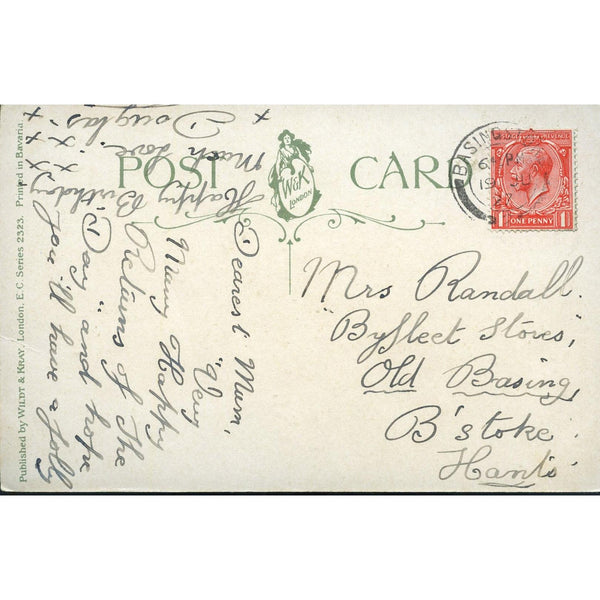 POST CARD
W&K
LONDON
Published by WILDT & KRAY, London, E.C. Series 2323. Printed in Bavaria
Dearest Mum,
"Very
Many Happy
Returns of the
Day" and hope
you'll have a jolly
Happy Birthday
Much love.
Douglas.
x x x x x
BASING
6
19 JU
27
POSTAGE REVENUE
1 ONE PENNY 1
Mrs Randall.
"Byfleet Stores,"
Old Basing,
B'stoke.
Hants